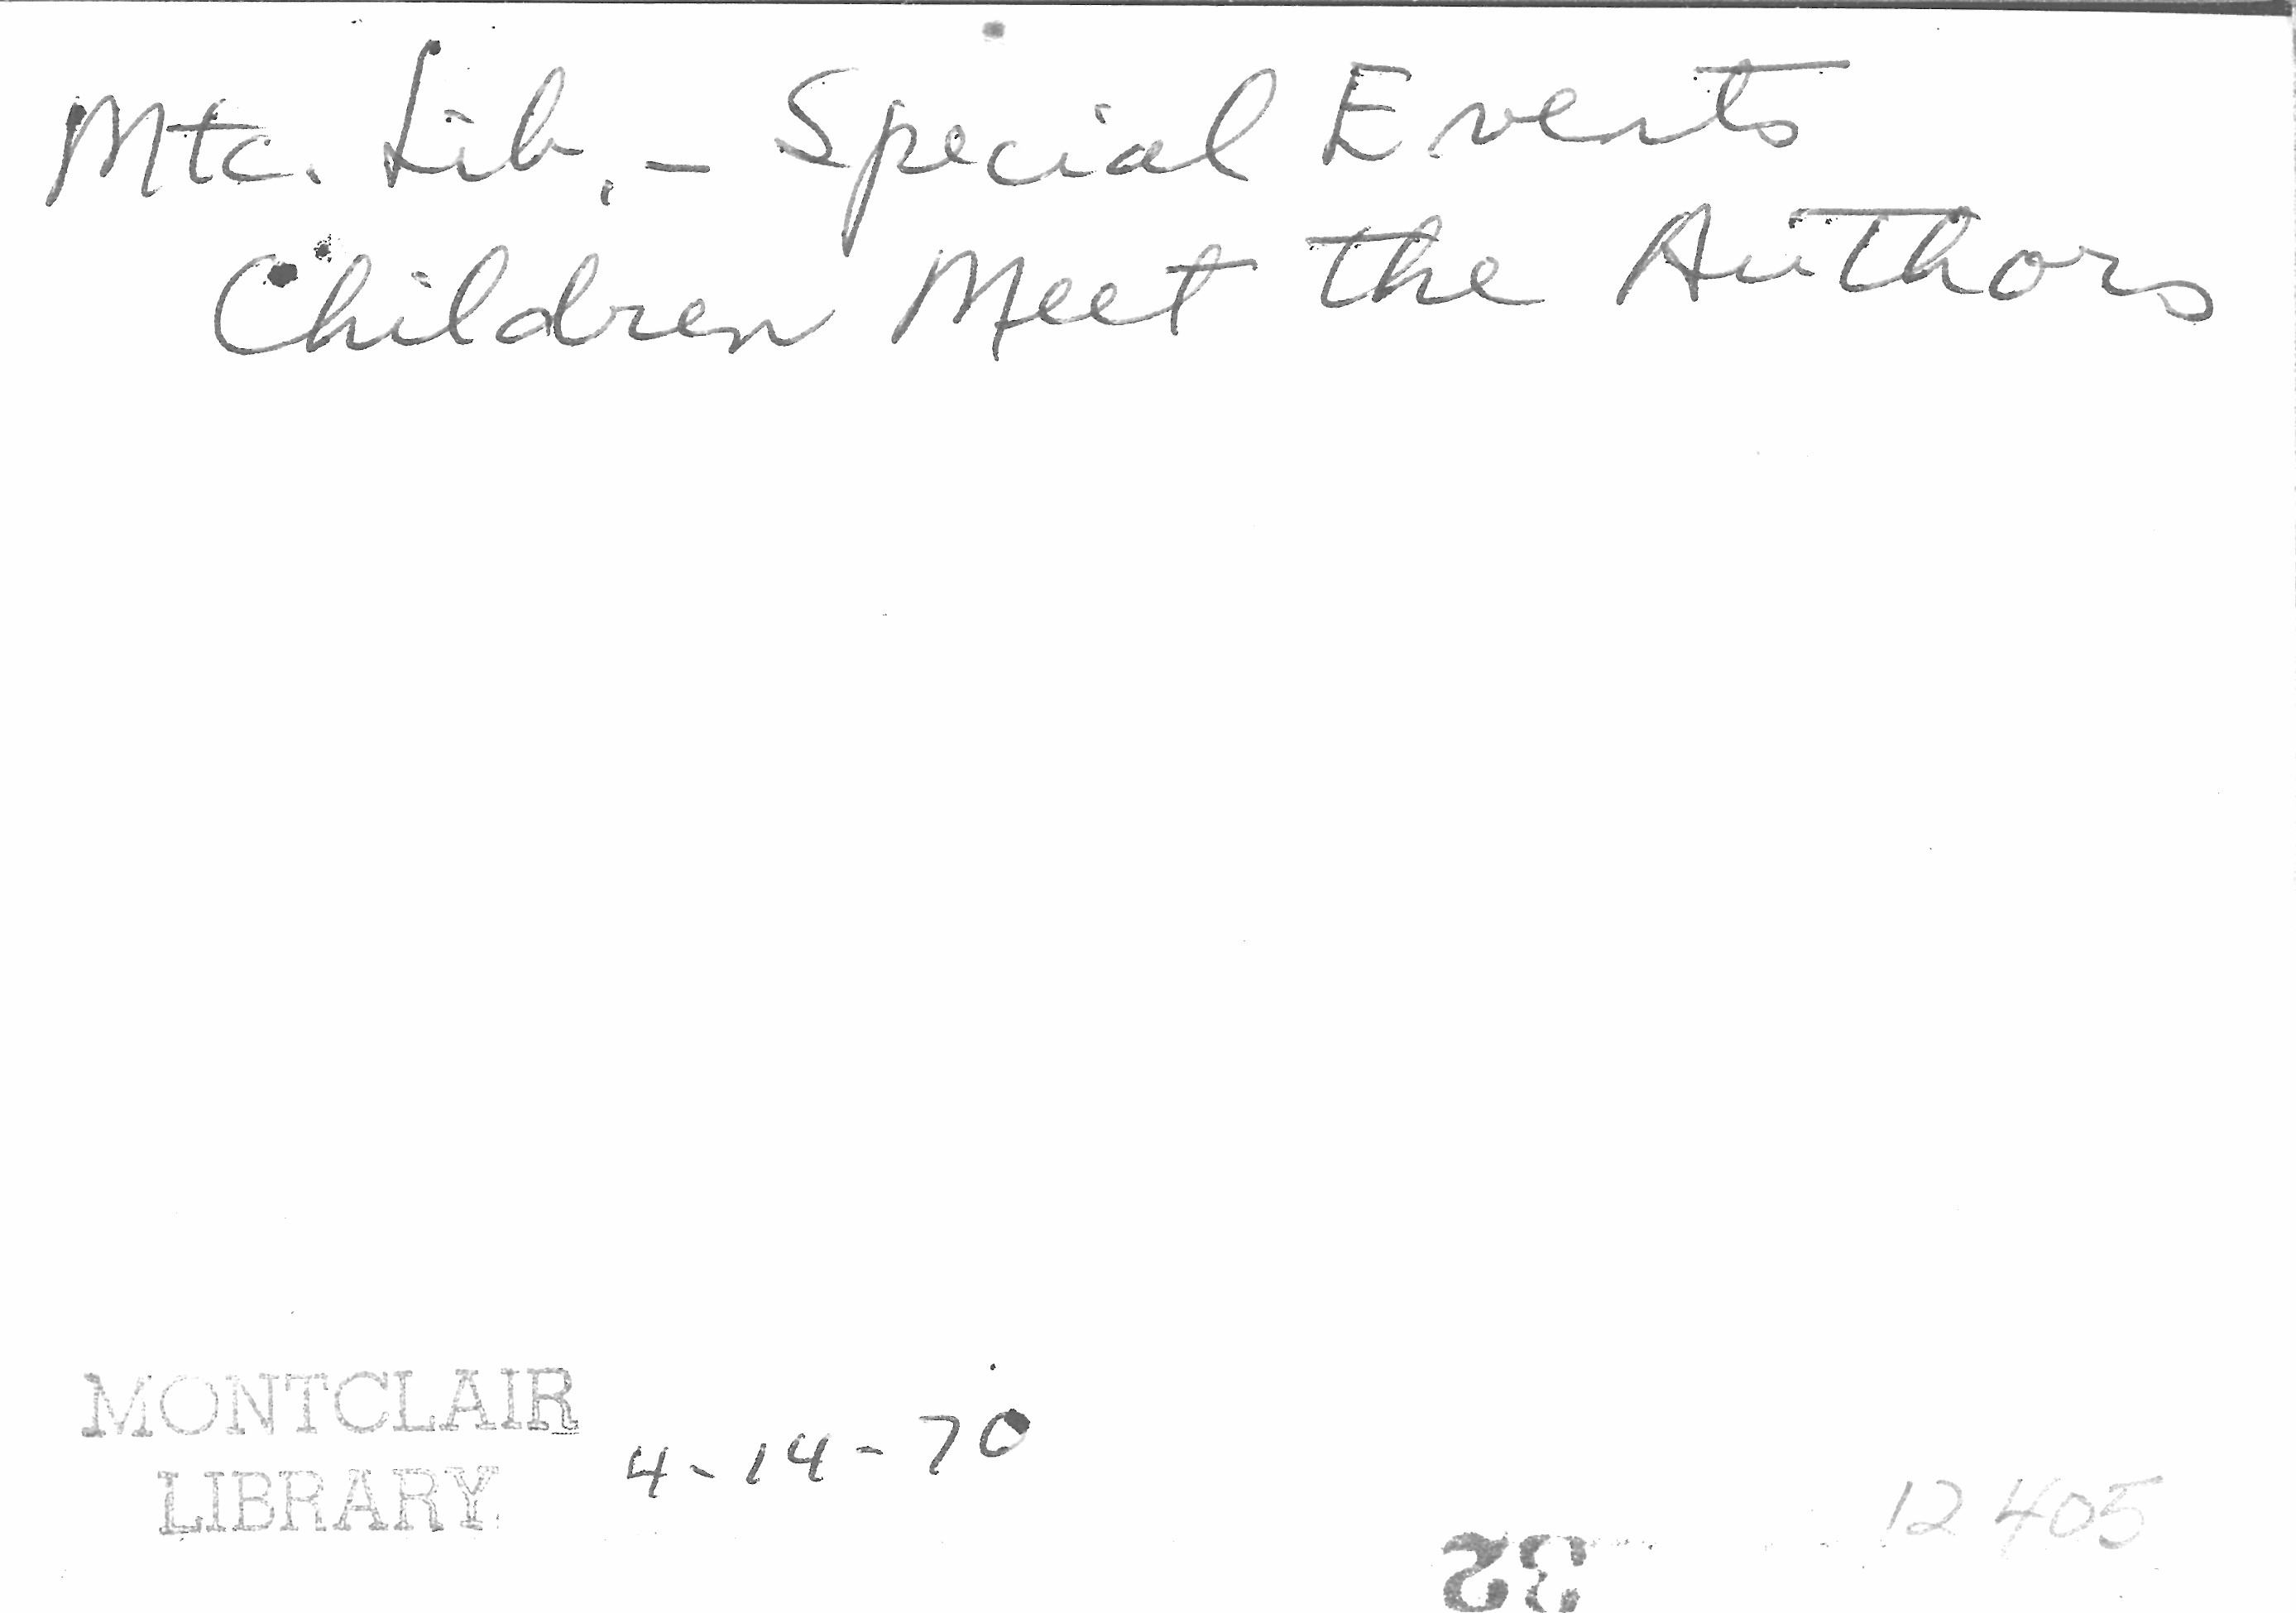 Mtc. Lib. - Special Events
Children Meet the Authors
MONTCLAIR
LIBRARY
4-14-70
12405